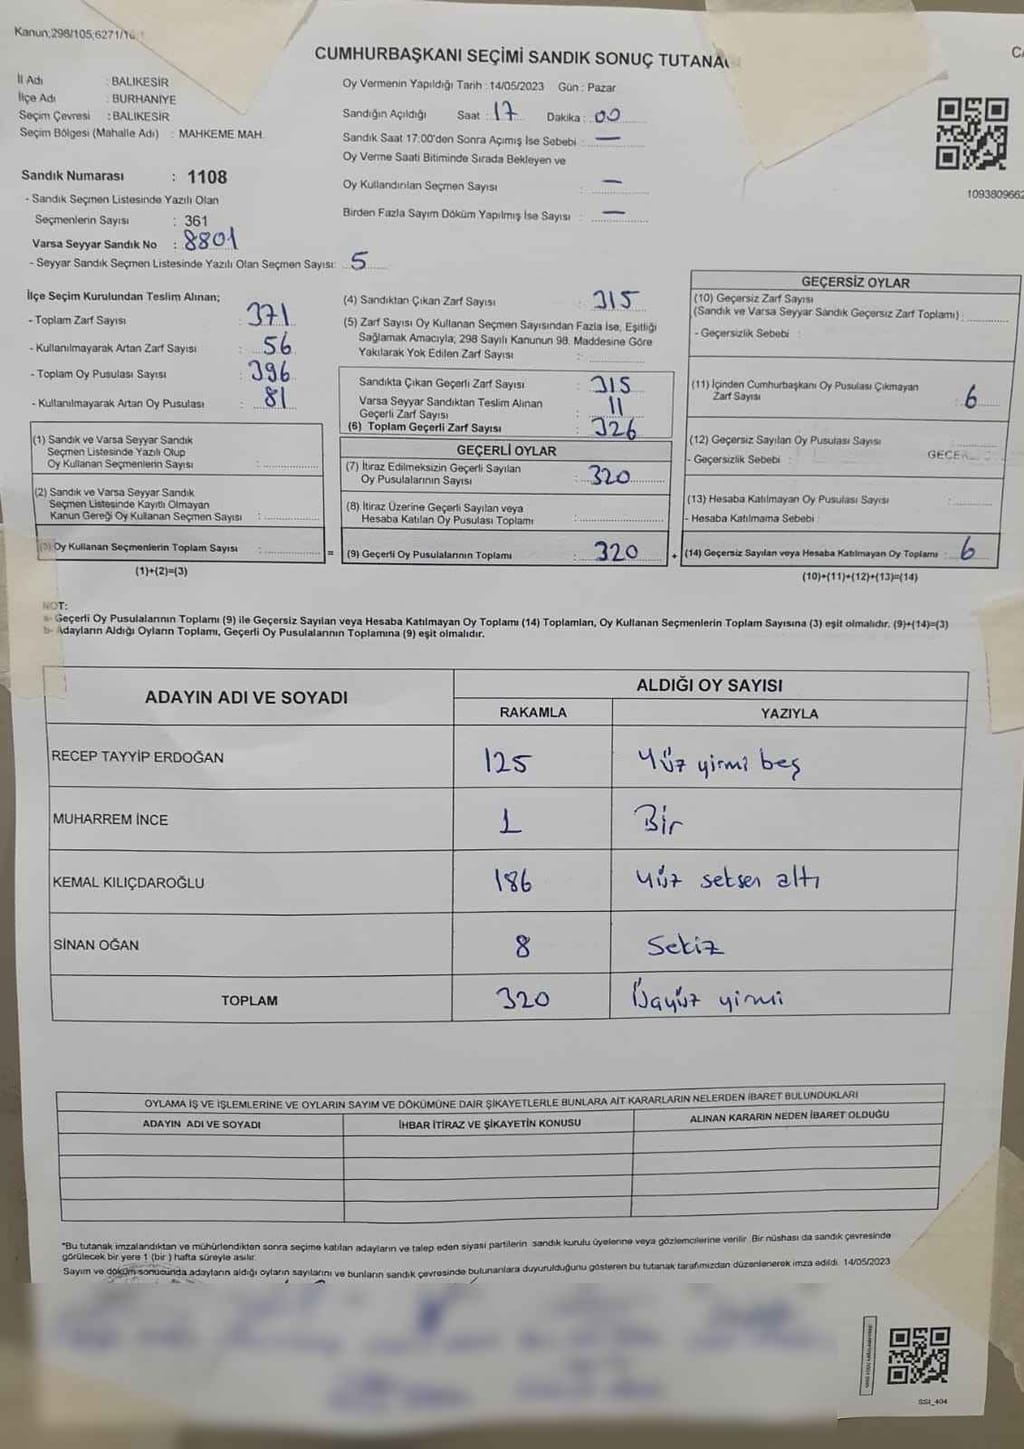 Kanun;298/105;6271/16
CUMHURBAŞKANI SEÇİMİ SANDIK SONUÇ TUTANA
İl Adı : BALIKESİR
İlçe Adı : BURHANİYE
Seçim Çevresi : BALIKESİR
Seçim Bölgesi (Mahalle Adı) : MAHKEME MAH.
Sandık Numarası : 1108
- Sandık Seçmen Listesinde Yazılı Olan
Seçmenlerin Sayısı : 361
Varsa Seyyar Sandık No : 8801
- Seyyar Sandık Seçmen Listesinde Yazılı Olan Seçmen Sayısı: 5
Oy Vermenin Yapıldığı Tarih : 14/05/2023 Gün : Pazar
Sandığın Açıldığı Saat : 17 Dakika : 00
Sandık Saat 17:00'den Sonra Açımış İse Sebebi : —
Oy Verme Saati Bitiminde Sırada Bekleyen ve
Oy Kullandırılan Seçmen Sayısı : —
Birden Fazla Sayım Döküm Yapılmış İse Sayısı : —
1093809662
İlçe Seçim Kurulundan Teslim Alınan;
- Toplam Zarf Sayısı : 371
- Kullanılmayarak Artan Zarf Sayısı : 56
- Toplam Oy Pusulası Sayısı : 396
- Kullanılmayarak Artan Oy Pusulası : 81
(1) Sandık ve Varsa Seyyar Sandık
Seçmen Listesinde Yazılı Olup
Oy Kullanan Seçmenlerin Sayısı :
(2) Sandık ve Varsa Seyyar Sandık
Seçmen Listesinde Kayıtlı Olmayan
Kanun Gereği Oy Kullanan Seçmen Sayısı :
(3) Oy Kullanan Seçmenlerin Toplam Sayısı :
(1)+(2)=(3)
(4) Sandıktan Çıkan Zarf Sayısı : 315
(5) Zarf Sayısı Oy Kullanan Seçmen Sayısından Fazla İse, Eşitliği
Sağlamak Amacıyla; 298 Sayılı Kanunun 98. Maddesine Göre
Yakılarak Yok Edilen Zarf Sayısı :
Sandıkta Çıkan Geçerli Zarf Sayısı : 315
Varsa Seyyar Sandıktan Teslim Alınan
Geçerli Zarf Sayısı : 11
(6) Toplam Geçerli Zarf Sayısı : 326
GEÇERLİ OYLAR
(7) İtiraz Edilmeksizin Geçerli Sayılan
Oy Pusulalarının Sayısı : 320
(8) İtiraz Üzerine Geçerli Sayılan veya
Hesaba Katılan Oy Pusulası Toplamı :
= (9) Geçerli Oy Pusulalarının Toplamı : 320
GEÇERSİZ OYLAR
(10) Geçersiz Zarf Sayısı
(Sandık ve Varsa Seyyar Sandık Geçersiz Zarf Toplamı) :
- Geçersizlik Sebebi :
(11) İçinden Cumhurbaşkanı Oy Pusulası Çıkmayan
Zarf Sayısı : 6
(12) Geçersiz Sayılan Oy Pusulası Sayısı :
- Geçersizlik Sebebi :
(13) Hesaba Katılmayan Oy Pusulası Sayısı :
- Hesaba Katılmama Sebebi :
+ (14) Geçersiz Sayılan veya Hesaba Katılmayan Oy Toplamı : 6
(10)+(11)+(12)+(13)=(14)
NOT:
a- Geçerli Oy Pusulalarının Toplamı (9) ile Geçersiz Sayılan veya Hesaba Katılmayan Oy Toplamı (14) Toplamları, Oy Kullanan Seçmenlerin Toplam Sayısına (3) eşit olmalıdır. (9)+(14)=(3)
b- Adayların Aldığı Oyların Toplamı, Geçerli Oy Pusulalarının Toplamına (9) eşit olmalıdır.
ADAYIN ADI VE SOYADI
ALDIĞI OY SAYISI
RAKAMLA YAZIYLA
RECEP TAYYİP ERDOĞAN 125 Yüz yirmi beş
MUHARREM İNCE 1 Bir
KEMAL KILIÇDAROĞLU 186 Yüz seksen altı
SİNAN OĞAN 8 Sekiz
TOPLAM 320 Üçyüz yirmi
OYLAMA İŞ VE İŞLEMLERİNE VE OYLARIN SAYIM VE DÖKÜMÜNE DAİR ŞİKAYETLERLE BUNLARA AİT KARARLARIN NELERDEN İBARET BULUNDUKLARI
ADAYIN ADI VE SOYADI İHBAR İTİRAZ VE ŞİKAYETİN KONUSU ALINAN KARARIN NEDEN İBARET OLDUĞU
*Bu tutanak imzalandıktan ve mühürlendikten sonra seçime katılan adayların ve talep eden siyasi partilerin sandık kurulu üyelerine veya gözlemcilerine verilir. Bir nüshası da sandık çevresinde
görülecek bir yere 1 (bir ) hafta süreyle asılır.
Sayım ve döküm sonucunda adayların aldığı oyların sayılarını ve bunların sandık çevresinde bulunanlara duyurulduğunu gösteren bu tutanak tarafımızdan düzenlenerek imza edildi. 14/05/2023
SSI_404